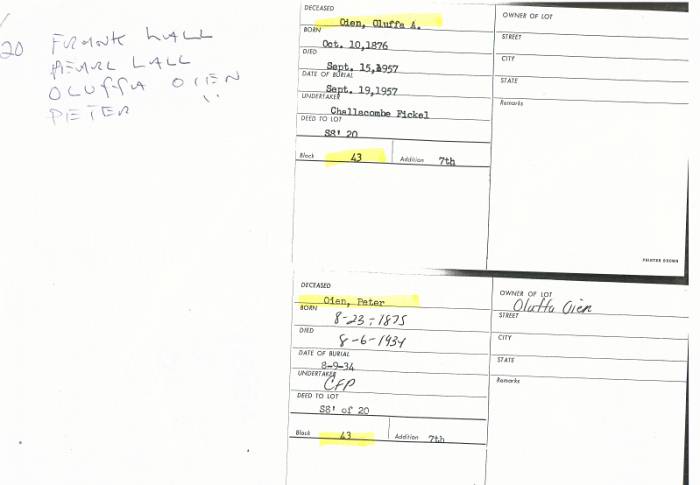 20 FRANK LALL
PEARL LALL
OLUFFA OIEN
PETER "
DECEASED
Oien, Oluffa A.
BORN
Oct. 10,1876
DIED
Sept. 15,1957
DATE OF BURIAL
Sept. 19,1957
UNDERTAKER
Challacombe Fickel
DEED TO LOT
SS' 20
Block 43 Addition 7th
OWNER OF LOT
STREET
CITY
STATE
Remarks
DECEASED
Oien, Peter
BORN
8-23-1875
DIED
8-6-1934
DATE OF BURIAL
8-9-34
UNDERTAKER
CFP
DEED TO LOT
SS' of 20
Block 43 Addition 7th
OWNER OF LOT
Oluffa Oien
STREET
CITY
STATE
Remarks